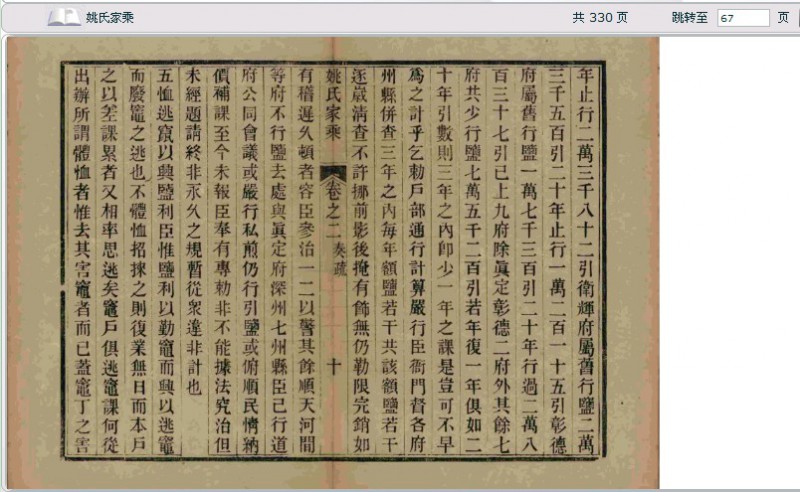 姚氏家乘
共 330 页
跳转至 67 页
年止行二萬三千八十二引衛輝府屬舊行鹽二萬
三千五百引二十年止行一萬二百一十五引彰德
府屬舊行鹽一萬七千三百引二十年行過二萬八
百三十七引已上九府除眞定彰德二府外其餘七
府共少行鹽七萬五千二百引若年復一年俱如二
十年引數則三年之內卽少一年之課是豈可不早
爲之計乎乞勅戶部通行計算嚴行臣衙門督各府
州縣併查三年之內每年額鹽若干共該額鹽若干
逐歲清查不許挪前影後掩有飾無仍勒限完銷如
姚氏家乘 卷之二 奏疏 十
有稽遲久頓者容臣參治一二以警其餘順天河間
等府不行鹽去處與眞定府深州七州縣臣已行道
府公同會議或嚴行私煎仍行引鹽或俯順民情納
價補課至今未報臣奉有專勅非不能據法究治但
未經題請終非永久之規暫從衆違非計也
五恤逃竄以興鹽利臣惟鹽利以勤竈而興以逃竈
而廢竈之逃也不體恤招揀之則復業無日而本戶
之以差課累者又相率思逃矣竈戶俱逃竈課何從
出辦所謂體恤者惟去其害竈者而已蓋竈丁之害